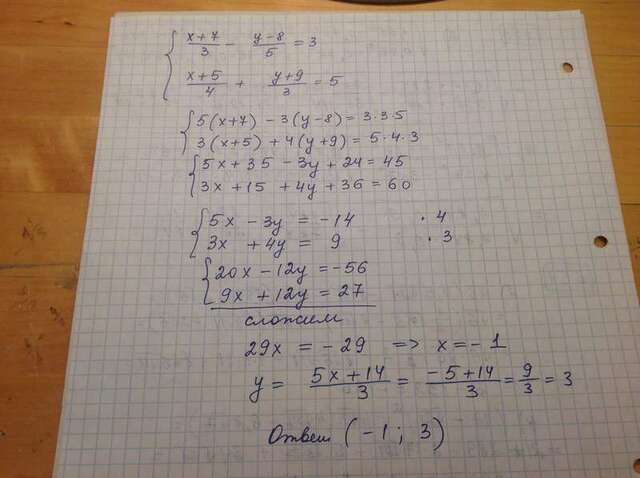 x+7/3 - y-8/5 = 3
x+5/4 + y+9/3 = 5
5(x+7) - 3(y-8) = 3·3·5
3(x+5) + 4(y+9) = 5·4·3
5x + 35 - 3y + 24 = 45
3x + 15 + 4y + 36 = 60
5x - 3y = -14 · 4
3x + 4y = 9 · 3
20x - 12y = -56
9x + 12y = 27
сложим
29x = -29 => x = -1
y = 5x+14/3 = -5+14/3 = 9/3 = 3
Ответ (-1; 3)